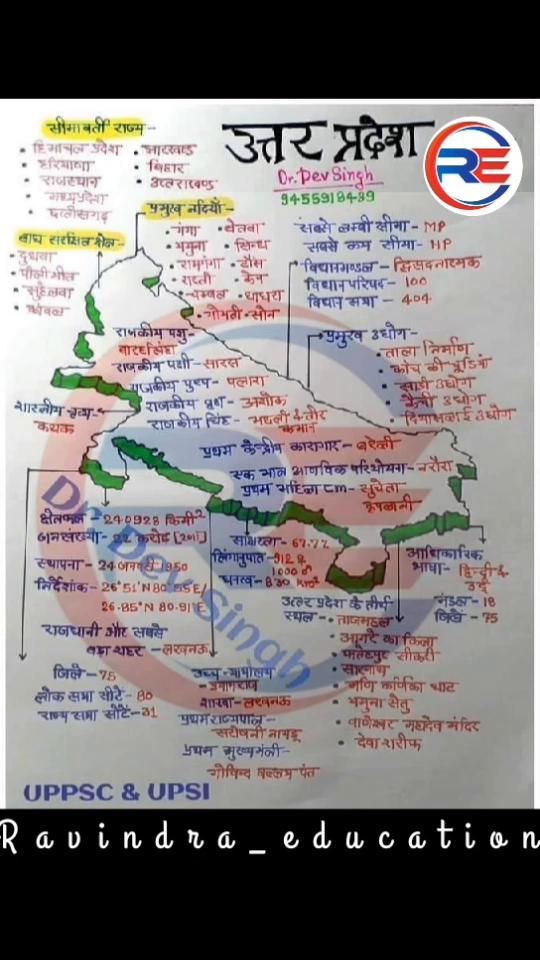 सीमावर्ती राज्य -
• हिमाचल प्रदेश
• हरियाणा
• राजस्थान
• मध्यप्रदेश
• छत्तीसगढ़
• झारखण्ड
• बिहार
• उत्तराखण्ड
उत्तर प्रदेश
Dr. Dev Singh
9455918439
RE
बाघ संरक्षित क्षेत्र -
• दुधवा
• पीलीभीत
• सुहेलवा
प्रमुख नदियाँ -
• गंगा
• यमुना
• रामगंगा
• राप्ती
• चम्बल
• गोमती
• बेतवा
• सिन्ध
• टौंस
• केन
• घाघरा
• सोन
सबसे लम्बी सीमा - MP
सबसे कम सीमा - HP
विधानमण्डल - द्विसदनात्मक
विधान परिषद - 100
विधान सभा - 404
प्रमुख उद्योग -
• ताला निर्माण
• काँच की चूड़ियाँ
• साड़ी उद्योग
• कैंची उद्योग
• दियासलाई उद्योग
राजकीय पशु -
बारहसिंघा
राजकीय पक्षी - सारस
राजकीय पुष्प - पलाश
राजकीय वृक्ष - अशोक
राजकीय चिह्न - मछली व तीर
कमान
शास्त्रीय नृत्य -
कथक
प्रथम केन्द्रीय कारागार - बरेली
एक मात्र आणविक परियोजना - नरौरा
प्रथम महिला CM - सुचेता
कृपलानी
क्षेत्रफल - 240928 किमी²
जनसंख्या - 22 करोड़ [2011]
स्थापना - 24 जनवरी 1950
निर्देशांक - 26°51'N 80.55'E/
26.85°N 80.91°E
साक्षरता - 67.77
लिंगानुपात - 912 ♀
1000 ♂
घनत्व - 830 km²
आधिकारिक
भाषा - हिन्दी व
उर्दू
मंडल - 18
जिले - 75
राजधानी और सबसे
बड़ा शहर - लखनऊ
जिले - 75
लोक सभा सीटें - 80
राज्य सभा सीटें - 31
उच्च न्यायालय
- प्रयागराज
शाखा - लखनऊ
प्रथम राज्यपाल -
सरोजनी नायडू
प्रथम मुख्यमंत्री -
गोविन्द वल्लभ पंत
उत्तर प्रदेश के तीर्थ
स्थल -
• ताजमहल
• आगरे का किला
• फतेहपुर सीकरी
• सारनाथ
• मणि कर्णिका घाट
• यमुना सेतु
• वाणेश्वर महादेव मंदिर
• देवा शरीफ
Dr. Dev Singh
UPPSC & UPSI
Ravindra_education